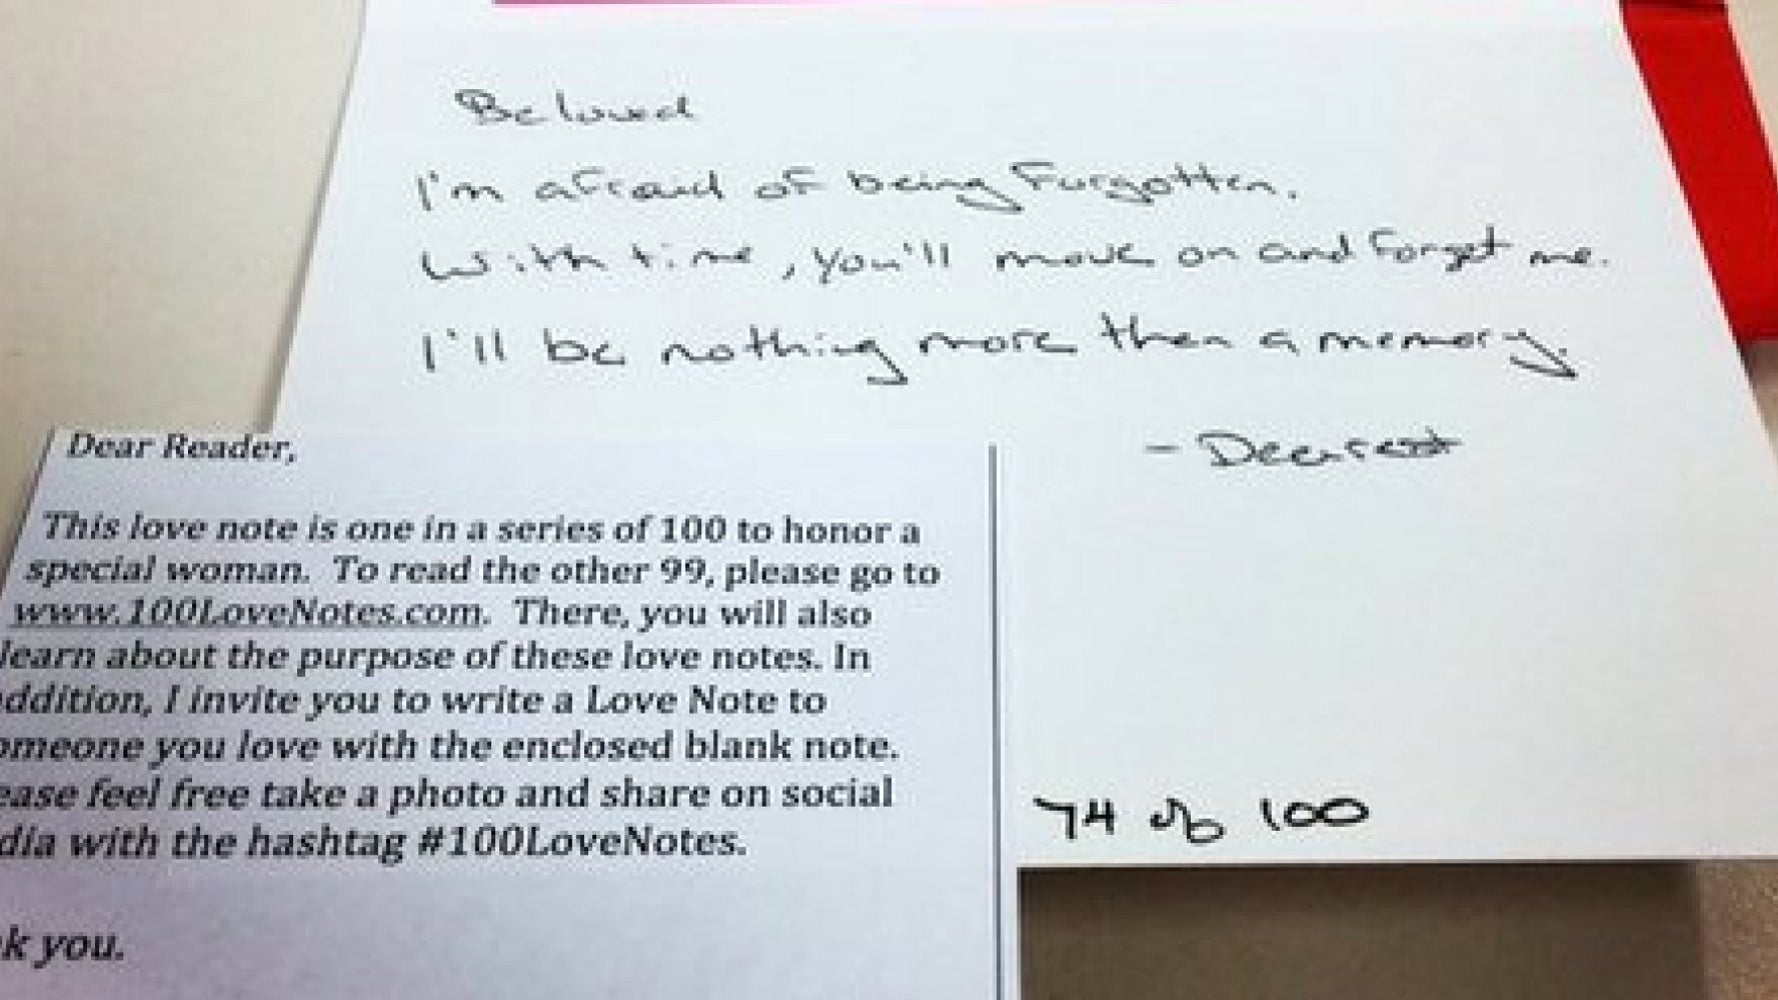 Beloved
I'm afraid of being Forgotten.
With time, you'll move on and Forget me.
I'll be nothing more then a memory.
- Dearest
74 of 100
Dear Reader,
This love note is one in a series of 100 to honor a
special woman. To read the other 99, please go to
www.100LoveNotes.com. There, you will also
learn about the purpose of these love notes. In
ddition, I invite you to write a Love Note to
omeone you love with the enclosed blank note.
ease feel free take a photo and share on social
dia with the hashtag #100LoveNotes.
k you.